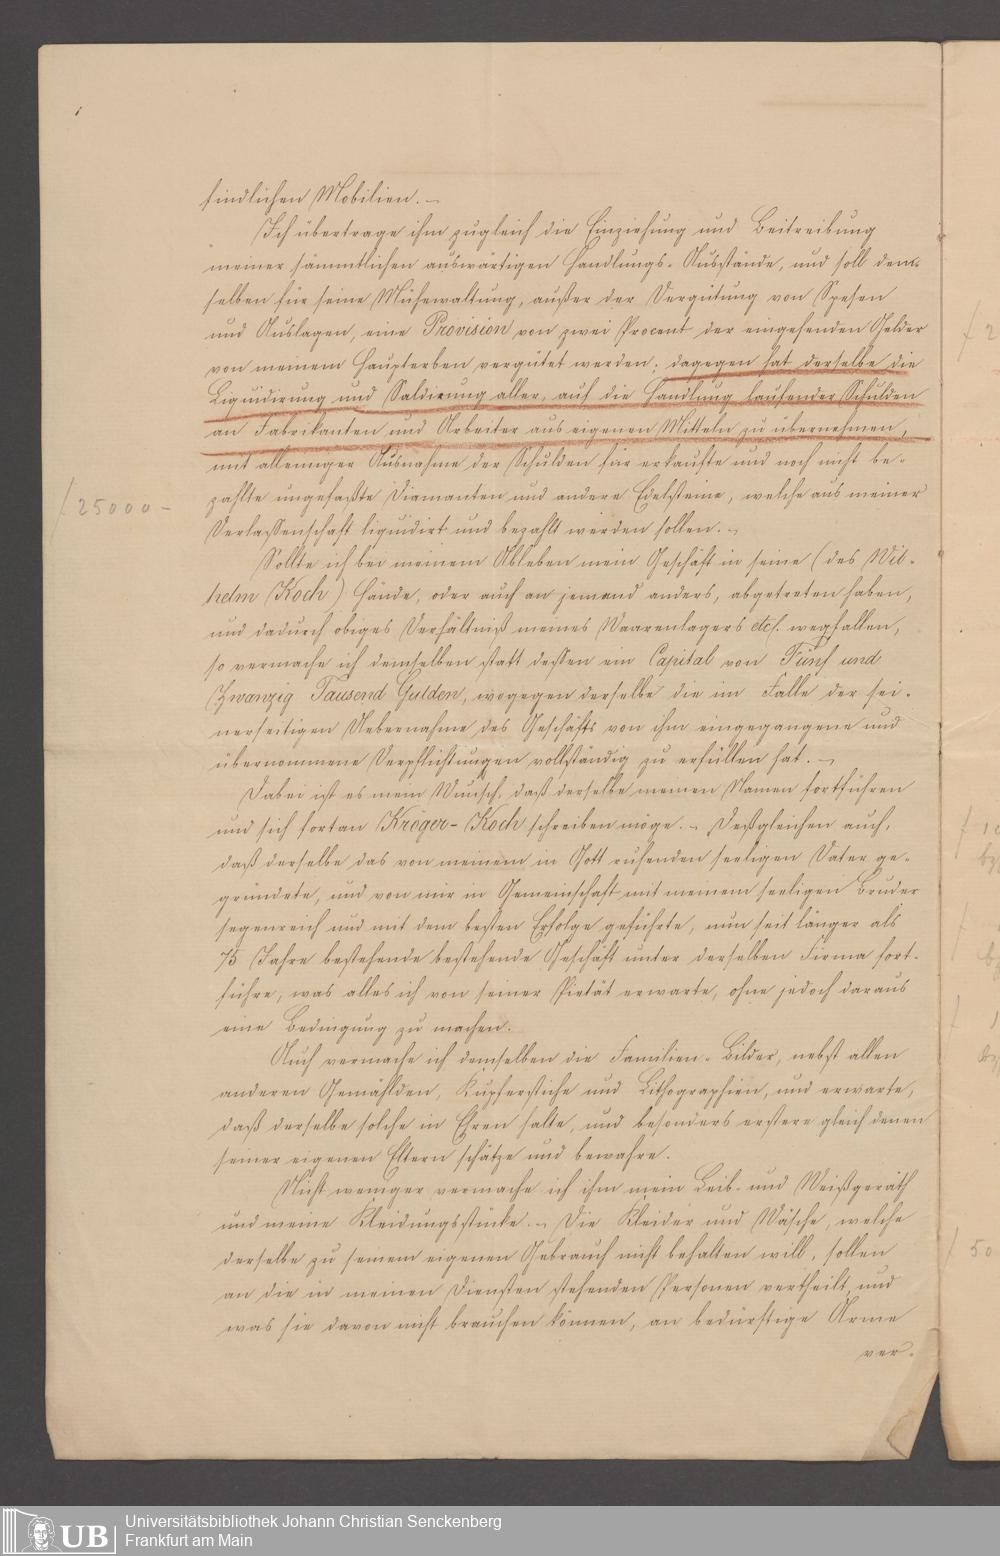 findlichen Mobilien. –
Ich übertrage ihm zugleich die Einziehung und Beitreibung
meiner sämmtlichen auswärtigen Handlungs-Ausstände, und soll dem-
selben für seine Mühewaltung, außer der Vergütung von Spesen
und Auslagen, eine Provision von zwei Procent der eingehenden Gelder
von meinem Haupterben vergütet werden; dagegen hat derselbe die
Liquidirung und Saldirung aller, auf die Handlung laufender Schulden
an Fabrikanten und Arbeiter aus eigenen Mitteln zu übernehmen,
mit alleiniger Ausnahme der Schulden für erkaufte und noch nicht be-
zahlte ungefaßte Diamanten und andere Edelsteine, welche aus meiner
f 25000 –
Verlassenschaft liquidirt und bezahlt werden sollen. –
Sollte ich bei meinem Ableben mein Geschäft in seine (des Wil-
helm Koch) Hände, oder auch an jemand anders, abgetreten haben,
und dadurch obiges Verhältniß meines Waarenlagers etc. wegfallen,
so vermache ich demselben statt dessen ein Capital von Fünf und
Zwanzig Tausend Gulden, wogegen derselbe die im Falle der sei-
nerseitigen Uebernahme des Geschäfts von ihm eingegangene und
übernommene Verpflichtungen vollständig zu erfüllen hat. –
Dabei ist es mein Wunsch, daß derselbe meinen Namen fortführen
und sich fortan Kröger-Koch schreiben möge. – Deßgleichen auch,
daß derselbe das von meinem in Gott ruhenden seeligen Vater ge-
gründete, und von mir in Gemeinschaft mit meinem seeligen Bruder
segenreich und mit dem besten Erfolge geführte, nun seit länger als
75 Jahre bestehende bestehende Geschäft unter derselben Firma fort-
führe, was alles ich von seiner Pietät erwarte, ohne jedoch daraus
eine Bedingung zu machen.
Auch vermache ich demselben die Familien-Bilder, nebst allen
anderen Gemählden, Kupferstiche und Lithographien, und erwarte,
daß derselbe solche in Ehren halte, und besonders erstere gleich denen
seiner eigenen Eltern schätze und bewahre.
Nicht weniger vermache ich ihm mein Leib- und Weißgeräth
und meine Kleidungsstücke. – Die Kleider und Wäsche, welche
derselbe zu seinem eigenen Gebrauch nicht behalten will, sollen
an die in meinen Diensten stehenden Personen vertheilt, und
was sie davon nicht brauchen können, an bedürftige Arme
ver-
UB
Universitätsbibliothek Johann Christian Senckenberg
Frankfurt am Main